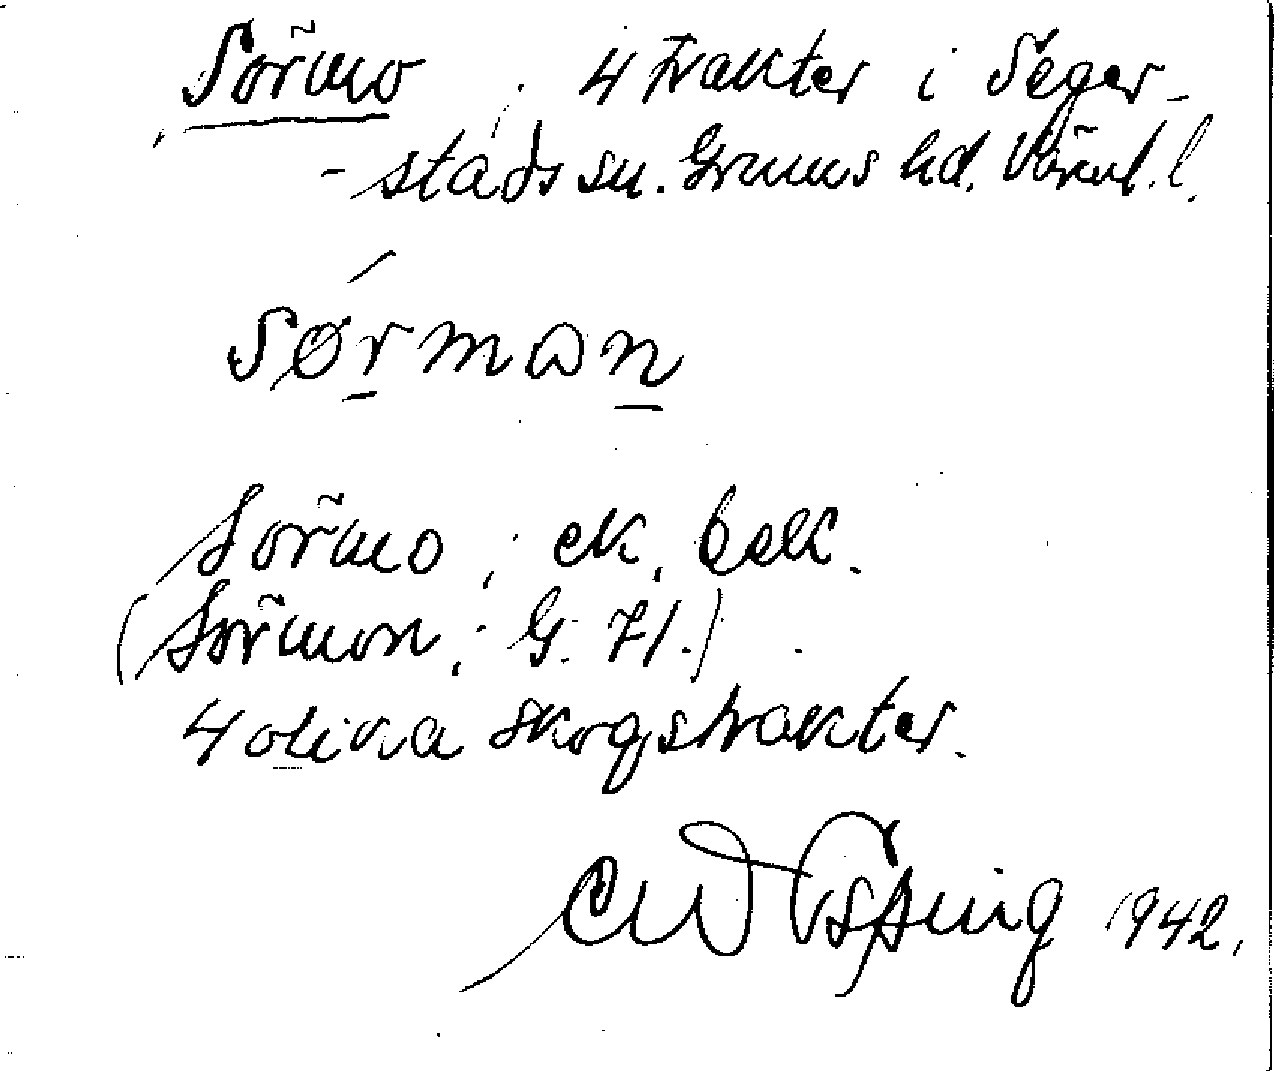 Sörmo ; 4 trakter i Seger-
-stads sn. Grums hd. Värml. l.
sørman
Sörmo ; ek. bok.
(Sörmon ; G. 71.)
4 olika skogstrakter.
1942.